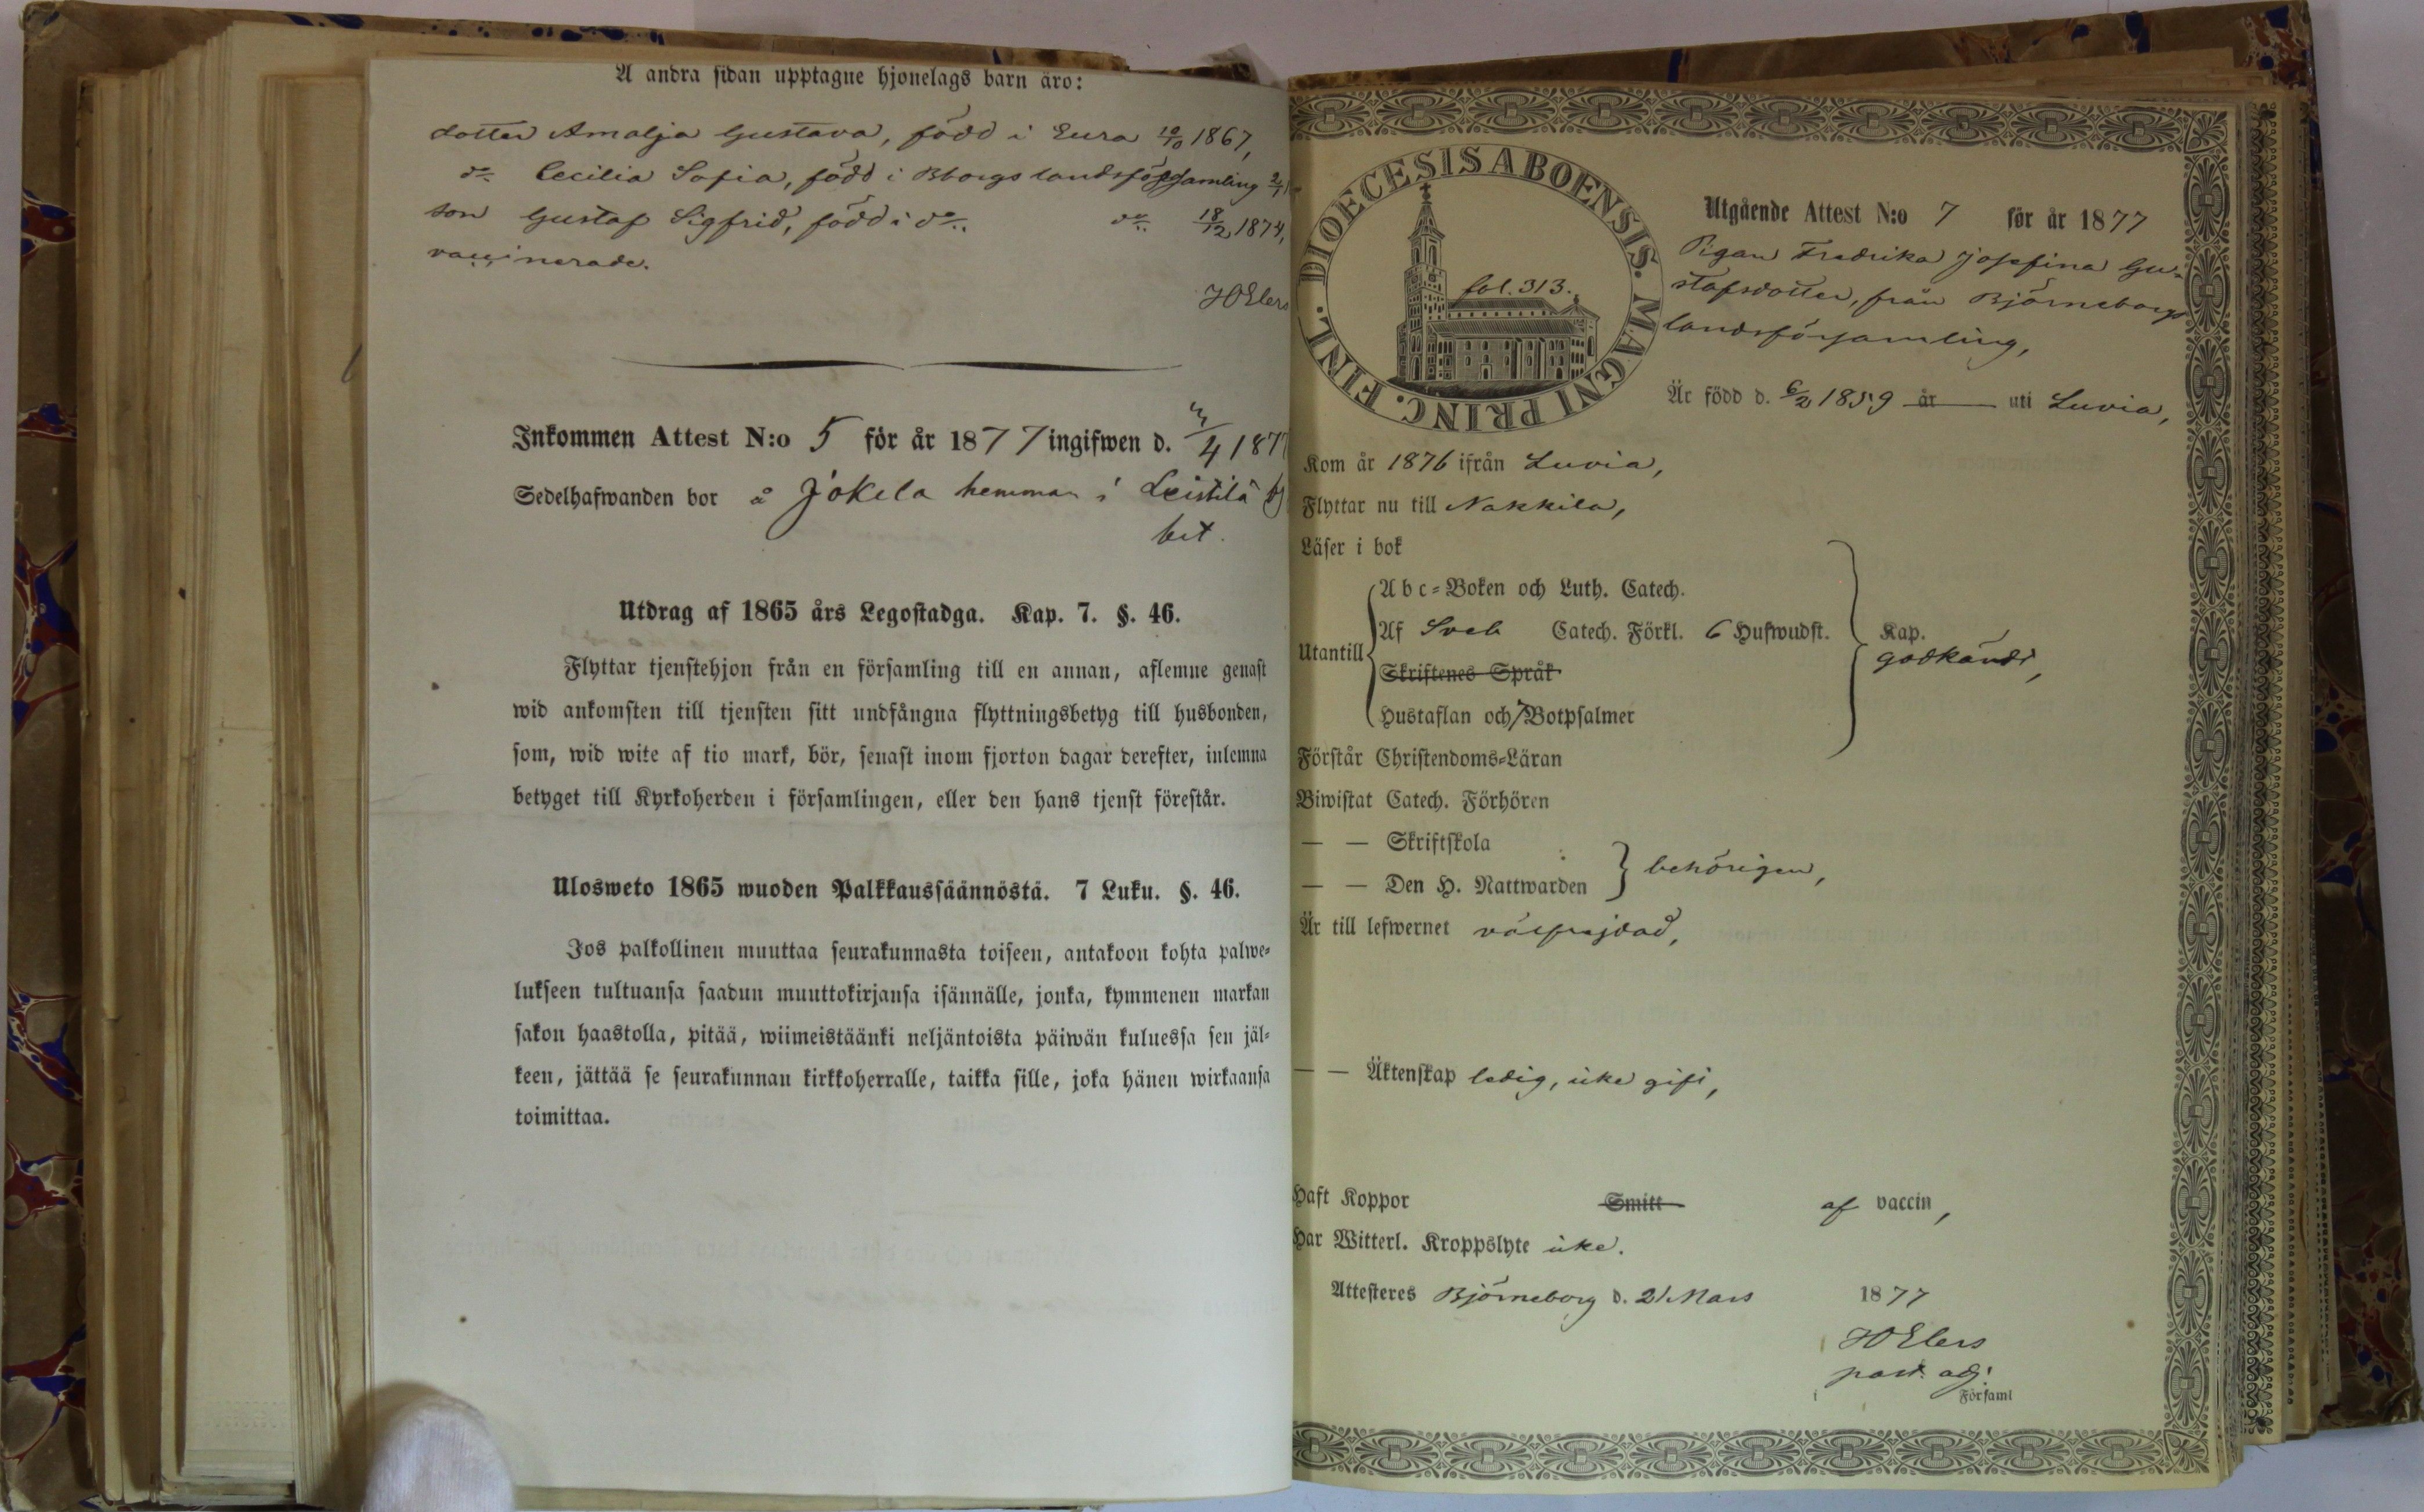 Å andra sidan upptagne hjonelags barn äro:
dotter Amalja Gustava, född i Eura 10/10 1867,
do Cecilia Sofia, född i Bborgs landsförsamling
son Gustaf Sigfrid, född i do do 18/12 1874,
vaccinerade.
HOElers
Inkommen Attest N:o 5 för år 1877 ingifwen d. 3/4 1877
Sedelhafwanden bor å Jokela hemman i Leistilä
bet.
Utdrag af 1865 års Legostadga. Kap. 7. §. 46.
Flyttar tjenstehjon från en församling till en annan, aflemne genast
wid ankomsten till tjensten sitt undfångna flyttningsbetyg till husbonden,
som, wid wite af tio mark, bör, senast inom fjorton dagar derefter, inlemna
betyget till Kyrkoherden i församlingen, eller den hans tjenst förestår.
Ulosweto 1865 wuoden Palkkaussäännöstä. 7 Luku. §. 46.
Jos palkollinen muuttaa seurakunnasta toiseen, antakoon kohta palwe-
lukseen tultuansa saadun muuttokirjansa isännälle, jonka, kymmenen markan
sakon haastolla, pitää, wiimeistäänki neljäntoista päiwän kuluessa sen jäl-
keen, jättää se seurakunnan kirkkoherralle, taikka sille, joka hänen wirkaansa
toimittaa.
DIOECESIS ABOENSIS. MAGNI PRINC. FINL.
fol. 313.
Utgående Attest N:o 7 för år 1877
Pigan Fredrika Josefina Gu-
stafsdotter, från Björneborgs
landsförsamling,
Är född d. 6/2 1859 år uti Luvia,
Kom år 1876 ifrån Luvia,
Flyttar nu till Nakkila,
Läser i bok
Abc-Boken och Luth. Catech.
Utantill Af Sveb Catech. Förkl. 6 Hufwudst. Kap.
godkändt,
Skriftenes Språk
Hustaflan och 7 Botpsalmer
Förstår Christendoms-Läran
Biwistat Catech. Förhören
— — Skriftskola
— — Den H. Nattwarden behörigen,
Är till lefwernet välfrejdad,
— — Äktenskap ledig, icke gift,
Haft Koppor Smitt af vaccin,
Har Witterl. Kroppslyte icke.
Attesteres Björneborg d. 21 Mars 1877
HOElers
past. adj.
i Församl